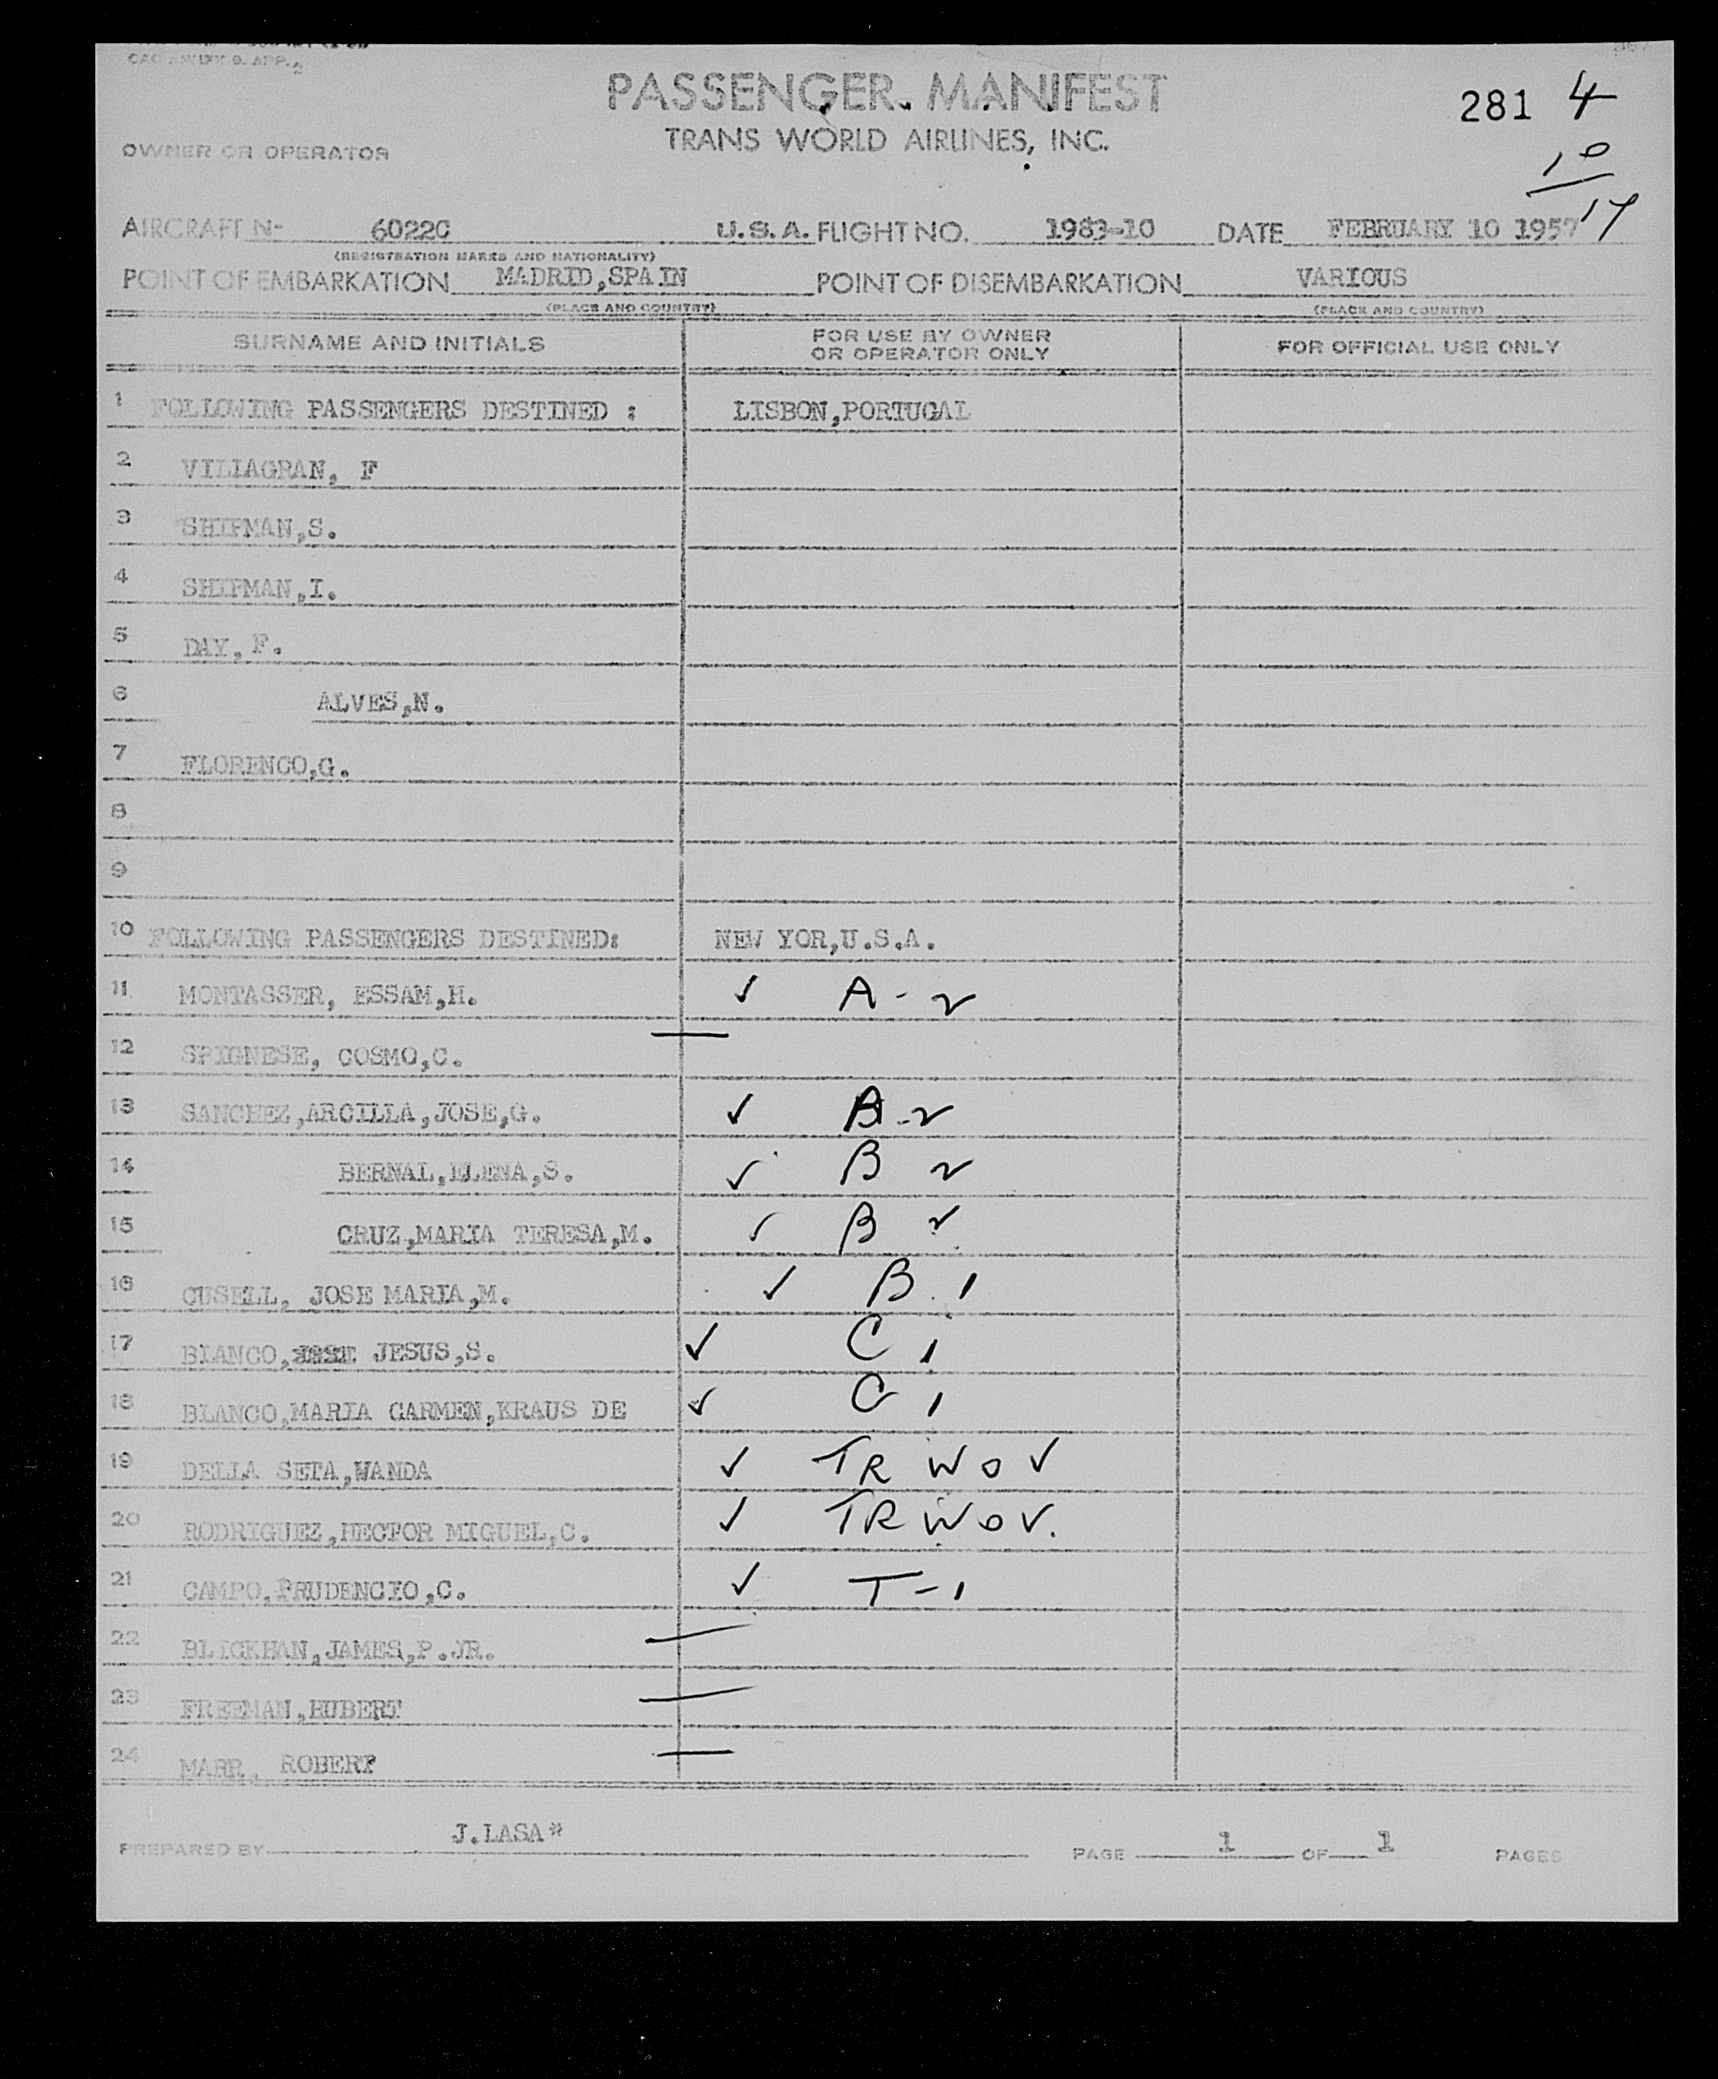 CAO ANNEX 9. APP. 2
PASSENGER MANIFEST
281 4
TRANS WORLD AIRLINES, INC.
OWNER OR OPERATOR
10
14
AIRCRAFT N- 6022C U.S.A. FLIGHT NO. 1983-10 DATE FEBRUARY 10 1957
(REGISTRATION MARKS AND NATIONALITY)
POINT OF EMBARKATION MADRID,SPAIN POINT OF DISEMBARKATION VARIOUS
(PLACE AND COUNTRY) (PLACE AND COUNTRY)
SURNAME AND INITIALS FOR USE BY OWNER OR OPERATOR ONLY FOR OFFICIAL USE ONLY
1 FOLLOWING PASSENGERS DESTINED : LISBON,PORTUGAL
2 VILLAGRAN, F
3 SHIFMAN,S.
4 SHIFMAN,I.
5 DAY, F.
6 ALVES,N.
7 FLORENCO,G.
8
9
10 FOLLOWING PASSENGERS DESTINED: NEW YOR,U.S.A.
11 MONTASSER, ESSAM,H. ✓ A-2
12 SPIGNESE, COSMO,C. —
13 SANCHEZ,ARCILLA,JOSE,G. ✓ B-2
14 BERNAL,ELENA,S. ✓ B 2
15 CRUZ,MARIA TERESA,M. ✓ B 2
16 CUSELL, JOSE MARIA,M. ✓ B.1
17 BLANCO, JESUS,S. ✓ C 1
18 BLANCO,MARIA CARMEN,KRAUS DE ✓ C 1
19 DELLA SETA,WANDA ✓ TR W O V
20 RODRIGUEZ,HECTOR MIGUEL,C. ✓ TR W O V.
21 CAMPO,PRUDENCIO,C. ✓ T-1
22 BLICKHAN,JAMES,P.JR. —
23 FREEMAN,HUBERT —
24 MARR, ROBERT —
PREPARED BY J.LASA* PAGE 1 OF 1 PAGES